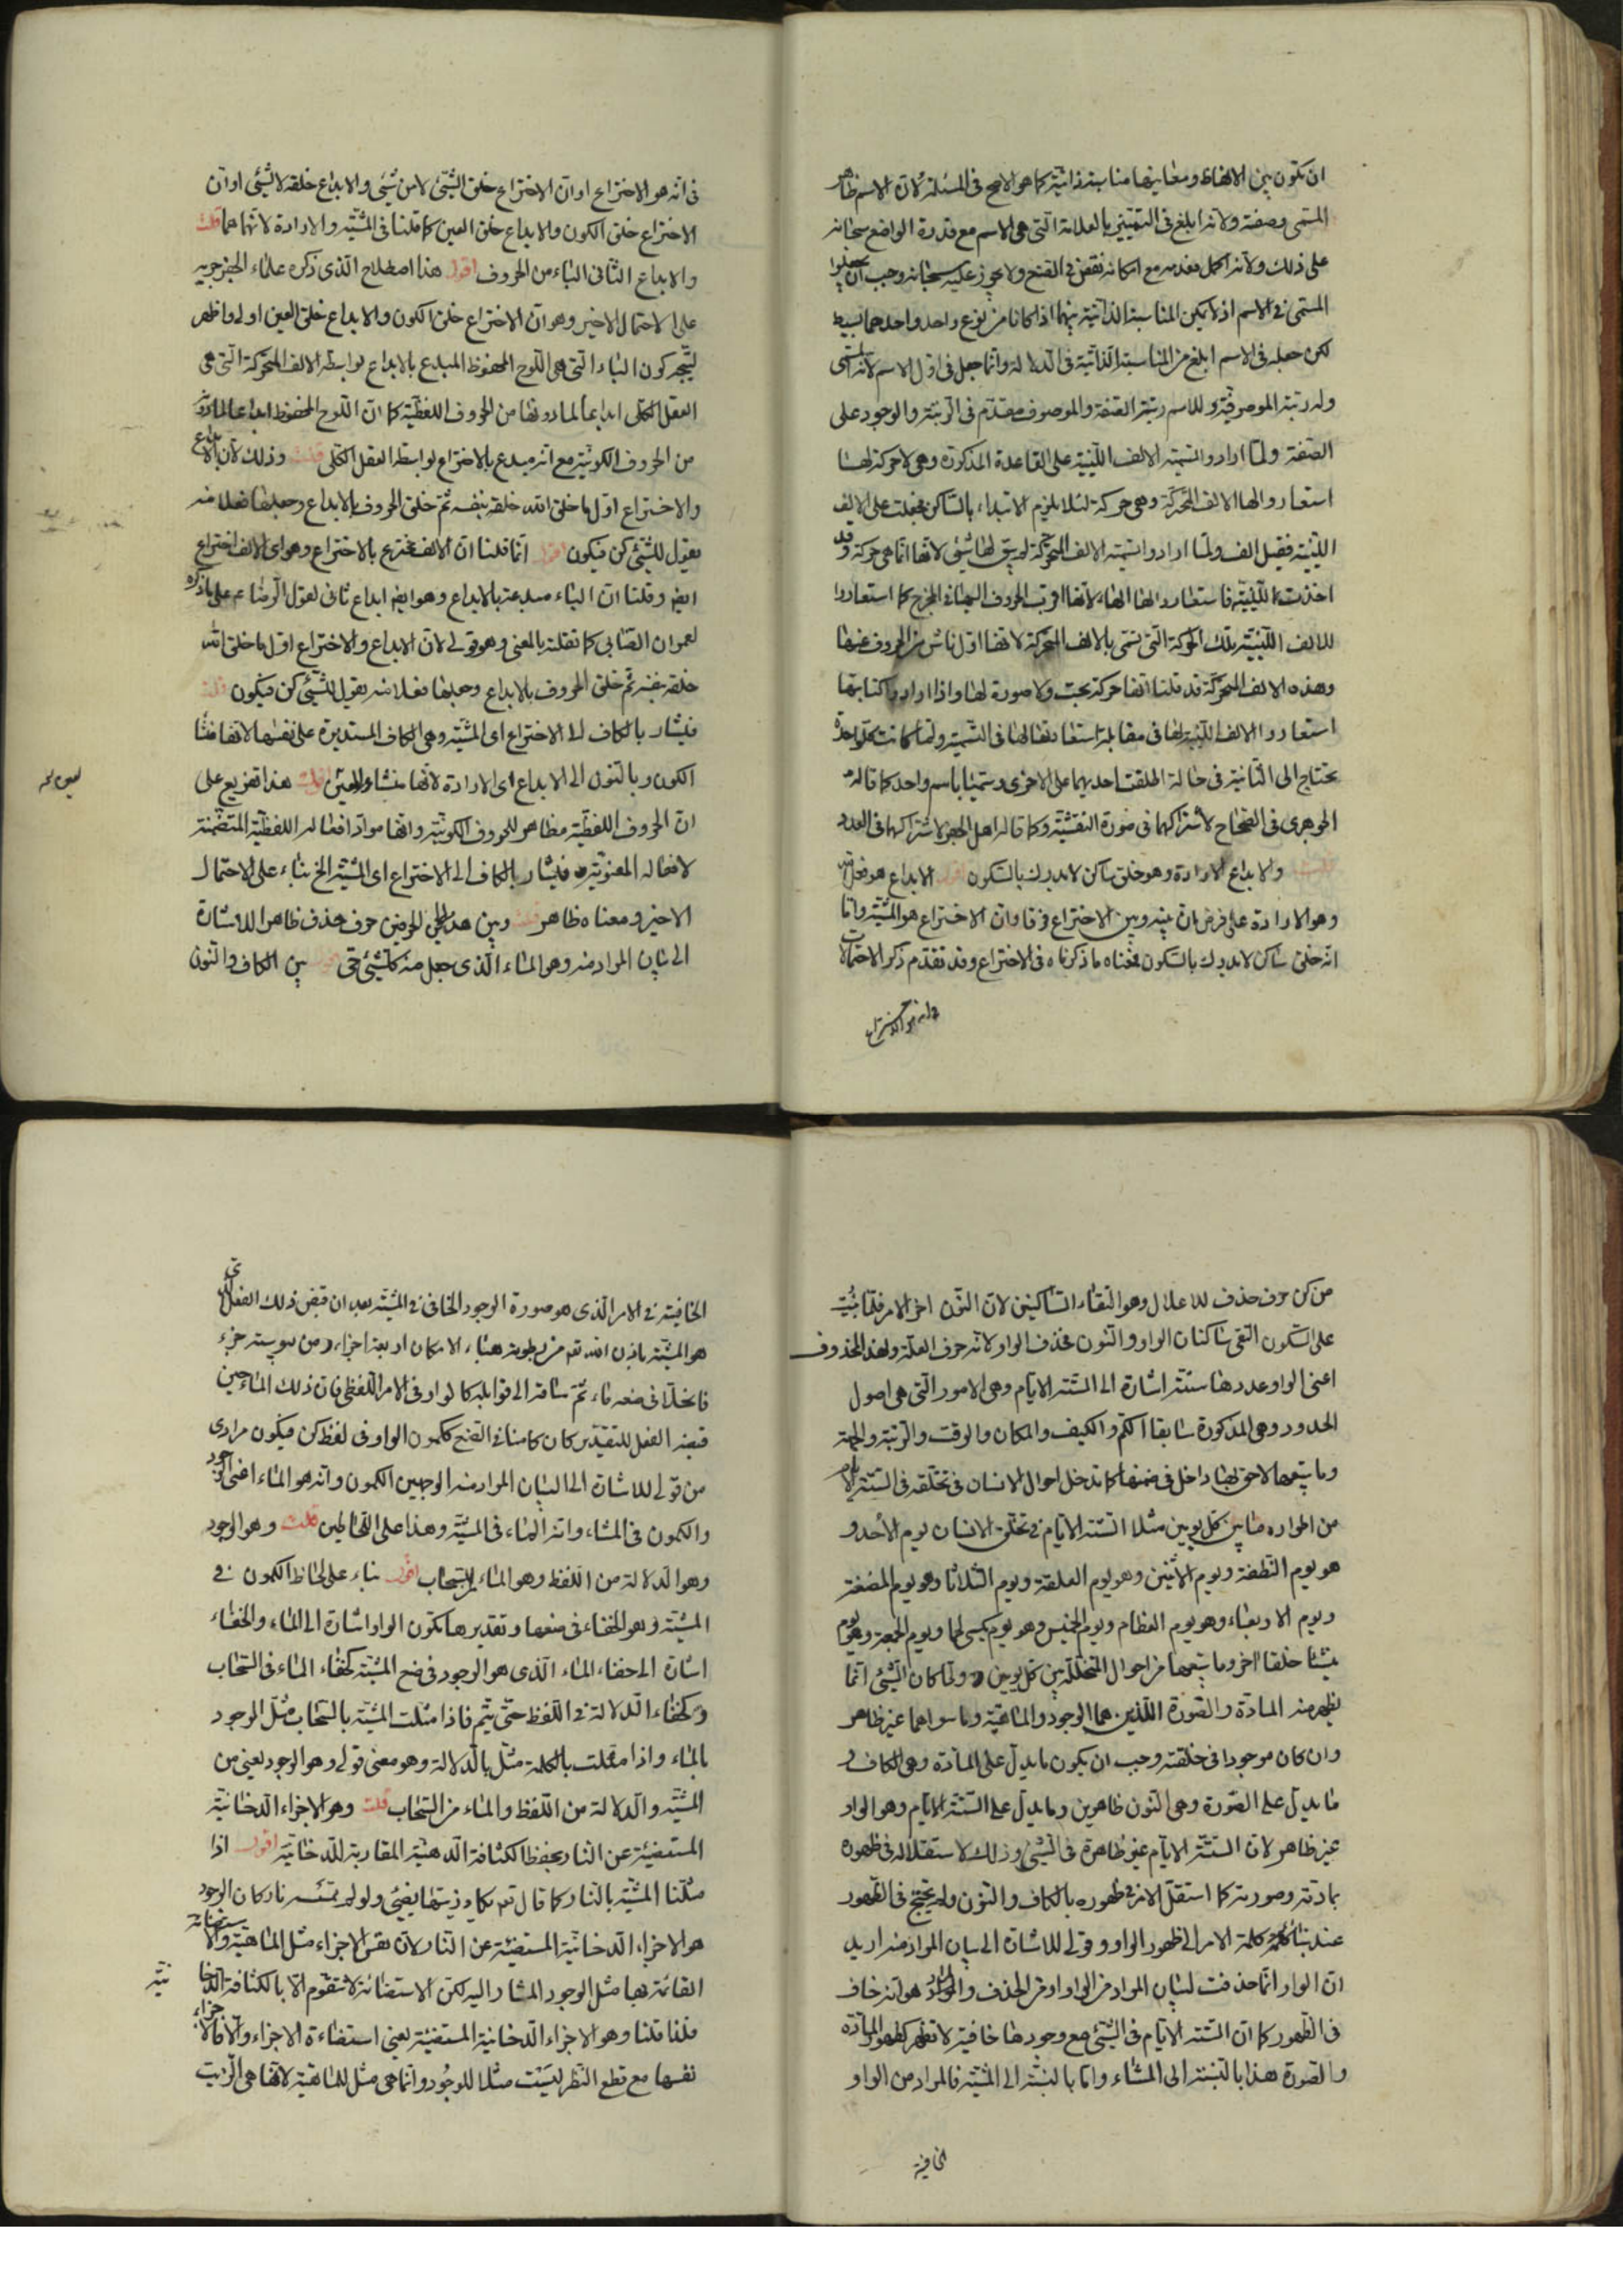 ان تكون بين الالفاظ ومعانيها مناسبة ذاتية كما هو الاصح فى المسئلة لان الاسم ظاهر
المسمى وصفته ولانه ابلغ فى التمييز بالعلامة التى هى الاسم مع قدرة الواضع سبحانه
على ذلك ولانه اكمل فعدمه مع امكانه نقص فى الصنع ولا يجوز عليه سبحانه وجب ان يجعلوا
المسمى فى الاسم اذ لا يمكن المناسبة الذاتية بينهما اذا كانا من نوع واحد واحدهما بسيط
لكن جعله فى الاسم ابلغ من المناسبة الذاتية فى الدلالة وانما جعل فى اول الاسم لانه المسمى
وله رتبة الموصوفية وللاسم رتبة الصفة والموصوف مقدم فى الرتبة والوجود على
الصفة ولما ارادوا تسمية الالف اللينية على القاعدة المذكورة وهى لا حركة لها
استعاروا لها الالف المتحركة وهى حركة لئلا يلزم الابتداء بالساكن فجعلت على الالف
اللينية فقيل الف ولما ارادوا تسمية الالف المتحركة لم يبق لها شئ لانها انما هى حركة وقد
اخذت للينية فاستعاروا لها الهاء لانها اقرب الحروف اليها فى المخرج كما استعاروا
للالف اللينية تلك الحركة التى تسمى بالالف المتحركة لانها اول ناش من الحروف عنها
وهذه الالف المتحركة قد قلنا انها حركة بحت ولا صورة لها واذا ارادوا كتابتها
استعاروا الالف اللينية لها فى مقابلة استعارتها لها فى التسمية ولما كانت كل واحدة
تحتاج الى الثانية فى حالة اطلقت احديهما على الاخرى وسميتا باسم واحد كما قاله
الجوهرى فى الصحاح لاشتراكهما فى صورة النقشية وكما قاله اهل الجفر لاشتراكهما فى العدد
قلت والابداع الارادة وهو خلق ساكن لا يدرك بالسكون اقول الابداع هو فعل الله
وهو الارادة على فرض ان بينه وبين الاختراع فرقا وان الاختراع هو المشية واما
انه خلق ساكن لا يدرك بالسكون فمعناه ما ذكرناه فى الاختراع وقد تقدم ذكر الاحتمالات
فى انه هو الاختراع
فى انه هو الاختراع او ان الاختراع خلق الشئ لا من شئ والابداع خلقه لا لشئ او ان
الاختراع خلق الكون والابداع خلق العين كما قلنا فى المشية والارادة لانهما هما قلت
والابداع الثانى الباء من الحروف اقول هذا اصطلاح الذى ذكره علماء الجفر جريه
على الاحتمال الاخير وهو ان الاختراع خلق الكون والابداع خلق العين اولى واظهر
ليتجه كون الباء التى هى اللوح المحفوظ المبدع بالابداع بواسطة الالف المتحركة التى هى
العقل الكلى ابداعا لما دونها من الحروف اللفظية كما ان اللوح المحفوظ ابداعا لما دونه
من الحروف الكونية مع انه مبدع بالاختراع بواسطة العقل الكلى قلت وذلك لان الابداع
والاختراع اول ما خلق الله خلقه بنفسه ثم خلق الحروف بالابداع وجعلها فعلا منه
يقول للشئ كن فيكون اقول انما قلنا ان الالف مخترع بالاختراع وهو اى الالف اختراع
ايضا وقلنا ان الباء مبدعة بالابداع وهو ايضا ابداع ثانى لقول الرضا ع على ما ذكره
لعمران الصابى كما نقلته بالمعنى وهو قولى لان الابداع والاختراع اول ما خلق الله
خلقه بنفسه ثم خلق الحروف بالابداع وجعلها فعلا منه يقول للشئ كن فيكون قلت
فيشار بالكاف الى الاختراع اى المشية وهى الكاف المستديرة على نفسها لانها منشأ
الكون وبالنون الى الابداع اى الارادة لانها منشاء العين اقول هذا تفريع على
ان الحروف اللفظية مظاهر للحروف الكونية وانها مواد افعاله اللفظية المتضمنة
لافعاله المعنوية فيشار بالكاف الى الاختراع اى المشية الخ بناء على الاحتمال
الاخير ومعناه ظاهر قلت وبين هذين الحرفين حرف حذف ظاهرا للاشارة
الى بيان المراد منه وهو الماء الذى جعل منه كل شئ حى اقول بين الكاف والنون
من كن حرف حذف للاعلال وهو التقاء الساكنين لان النون اخر الامر فلما بنيت
على السكون التقى ساكنان الواو والنون فحذف الواو لانه حرف العلة ولهذا المحذوف
اعنى الواو عددها ستة اشارة الى الستة الايام وهى الامور التى هى اصول
الحدود وهى المذكورة سابقا الكم والكيف والمكان والوقت والرتبة والجهة
وما يتبعها لاحق لها داخل فى ضمنها كما تدخل احوال الانسان فى تخلقه فى الستة الايام
من اطواره ما بين كل يومين مثلا الستة الايام فى تخلق الانسان يوم الأحد و
هو يوم النطفة ويوم الاثنين وهو يوم العلقة ويوم الثلاثا وهو يوم المضغة
ويوم الاربعاء وهو يوم العظام ويوم الخميس وهو يوم يكسى لحما ويوم الجمعة وهو يوم
ينشأ خلقا اخر وما يتبعها من احوال المتخللة بين كل يومين ولما كان الشئ انما
يظهر منه المادة والصورة اللذين هما الوجود والماهية وما سواهما غير ظاهر
وان كان موجودا فى خلقته وجب ان يكون ما يدل على المادة وهى الكاف و
ما يدل على الصورة وهى النون ظاهرين وما يدل على الستة الايام وهو الواو
غير ظاهر لان الستة الايام غير ظاهرة فى الشئ وذلك لاستقلاله فى ظهوره
بمادته وصورته كما استقل الامر فى ظهوره بالكاف والنون ولم يحتج فى الظهور
عند بناء كلمة الامر الى ظهور الواو وقولى للاشارة الى بيان المراد منه اريد
ان الواو انما حذفت لبيان المراد من الواو او من الحذف والمراد هو انه خاف
فى الظهور كما ان الستة الايام فى الشئ مع وجودها خافية لا تظهر كظهور المادة
والصورة هذا بالنسبة الى المشاء واما بالنسبة الى المشية فالمراد من الواو
الخافية
الخافية فى الامر الذى هو صورة الوجود الخافى فى المشية بعد ان قبض ذلك الفعل الذى
هو المشية باذن الله تع من رطوبة هباء الامكان اربعة اجزاء ومن يبوسته جزء
فانحلا فى ضعه ماء ثم ساقه الى قوابله كالواو فى الامر اللفظى فان ذلك الماء حين
قبضه الفعل للتقدير كان كامنا فى الصنع ككمون الواو فى لفظ كن فيكون مرادى
من قولى للاشارة الى البيان المراد منه الوجهين الكمون وانه هو الماء اعنى الوجود
والكمون فى المشاء وانه الماء فى المشية وهذا على التخاطين قلت وهو الوجود
وهو الدلالة من اللفظ وهو الماء من السحاب اقول بناء على لحاظ الكمون فى
المشية وهو الخفاء فى صنعها وتقديرها تكون الواو اشارة الى الماء والخفاء
اشارة الى خفاء الماء الذى هو الوجود فى صنع المشية كخفاء الماء فى السحاب
وكخفاء الدلالة فى اللفظ حتى يتم فاذا مثلت المشية بالسحاب مثل الوجود
بالماء واذا مثلت بالكلمة مثل بالدلالة وهو معنى قولى وهو الوجود يعنى من
المشية والدلالة من اللفظ والماء من السحاب قلت وهو الاجزاء الدخانية
المستضيئة عن النار بحفظ الكثافة الدهنية المقاربة للدخانية اقول اذا
مثلنا المشية بالنار كما قال تع يكاد زيتها يضئ ولو لم تمسسه نار كان الوجود
هو الاجزاء الدخانية المستضيئة عن النار لان نفس الاجزاء مثل الماهية والاستضائة
القائمة بها مثل الوجود المشار اليه لكن الاستضائة لا تتقوم الا بالكثافة الدخانية
فلذا قلنا وهو الاجزاء الدخانية المستضيئة يعنى استضاءة الاجزاء والا فالاجزاء
نفسها مع قطع النظر ليست مثلا للوجود وانما هى مثل للماهية لانها هى الزيت